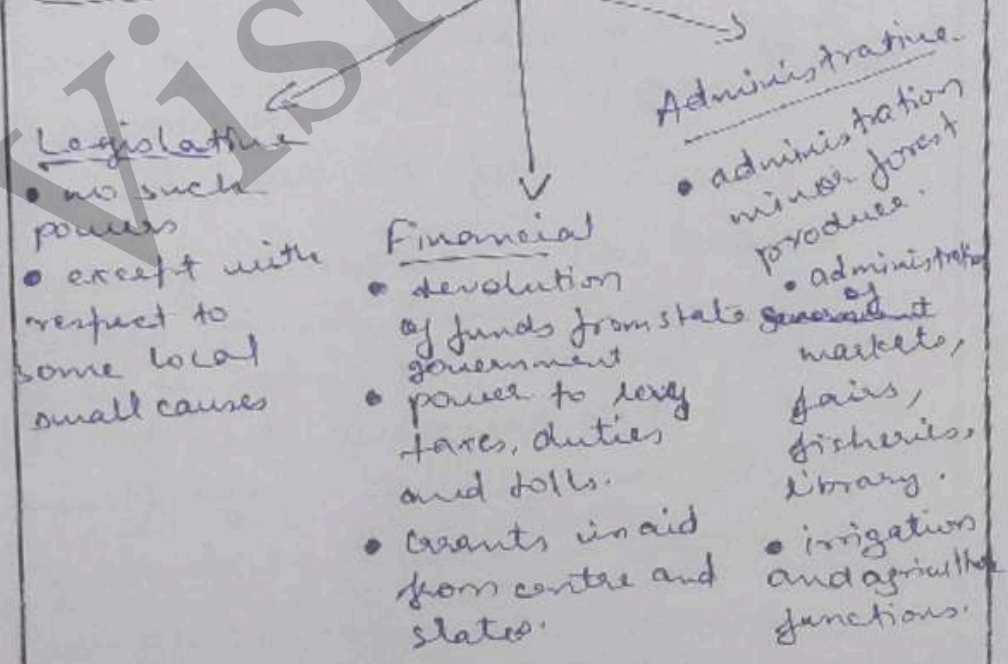 Legislative
• no such
powers
• except with
respect to
some local
small causes
Financial
• devolution
of funds from state
government
• power to levy
taxes, duties
and tolls.
• Grants in aid
from centre and
states.
Administrative
• administration
minor forest
produce.
• administration
of
markets,
fairs,
fisheries,
library.
• irrigation
and agriculture
functions.